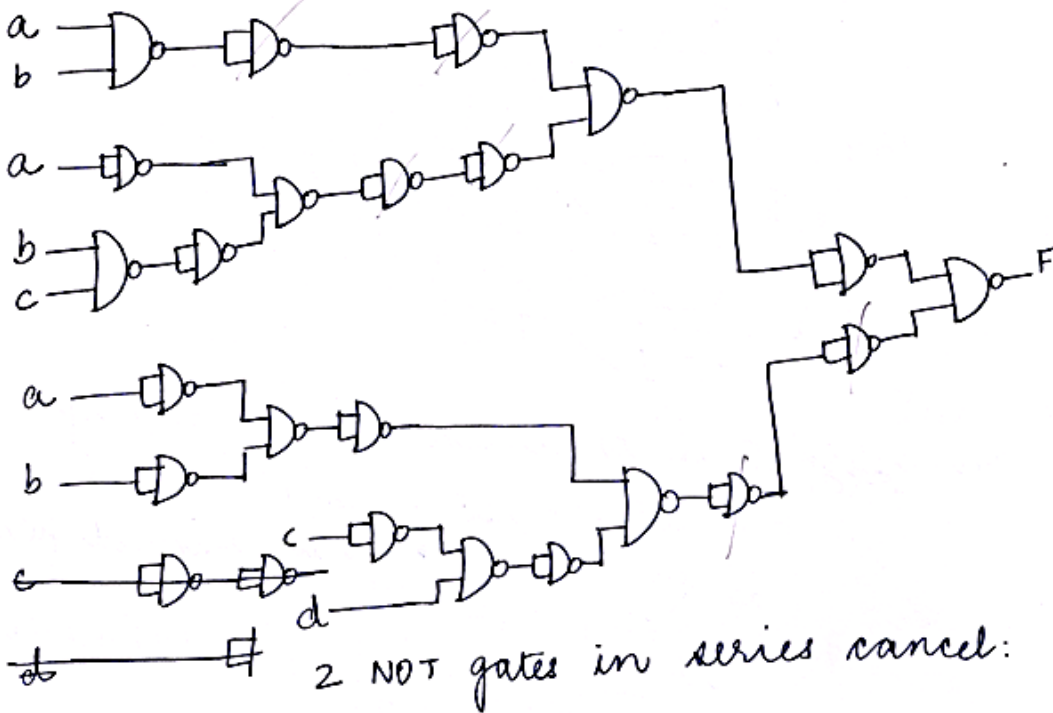 a
b
a
b
c
F
a
b
c
c
d
2 NOT gates in series cancel: